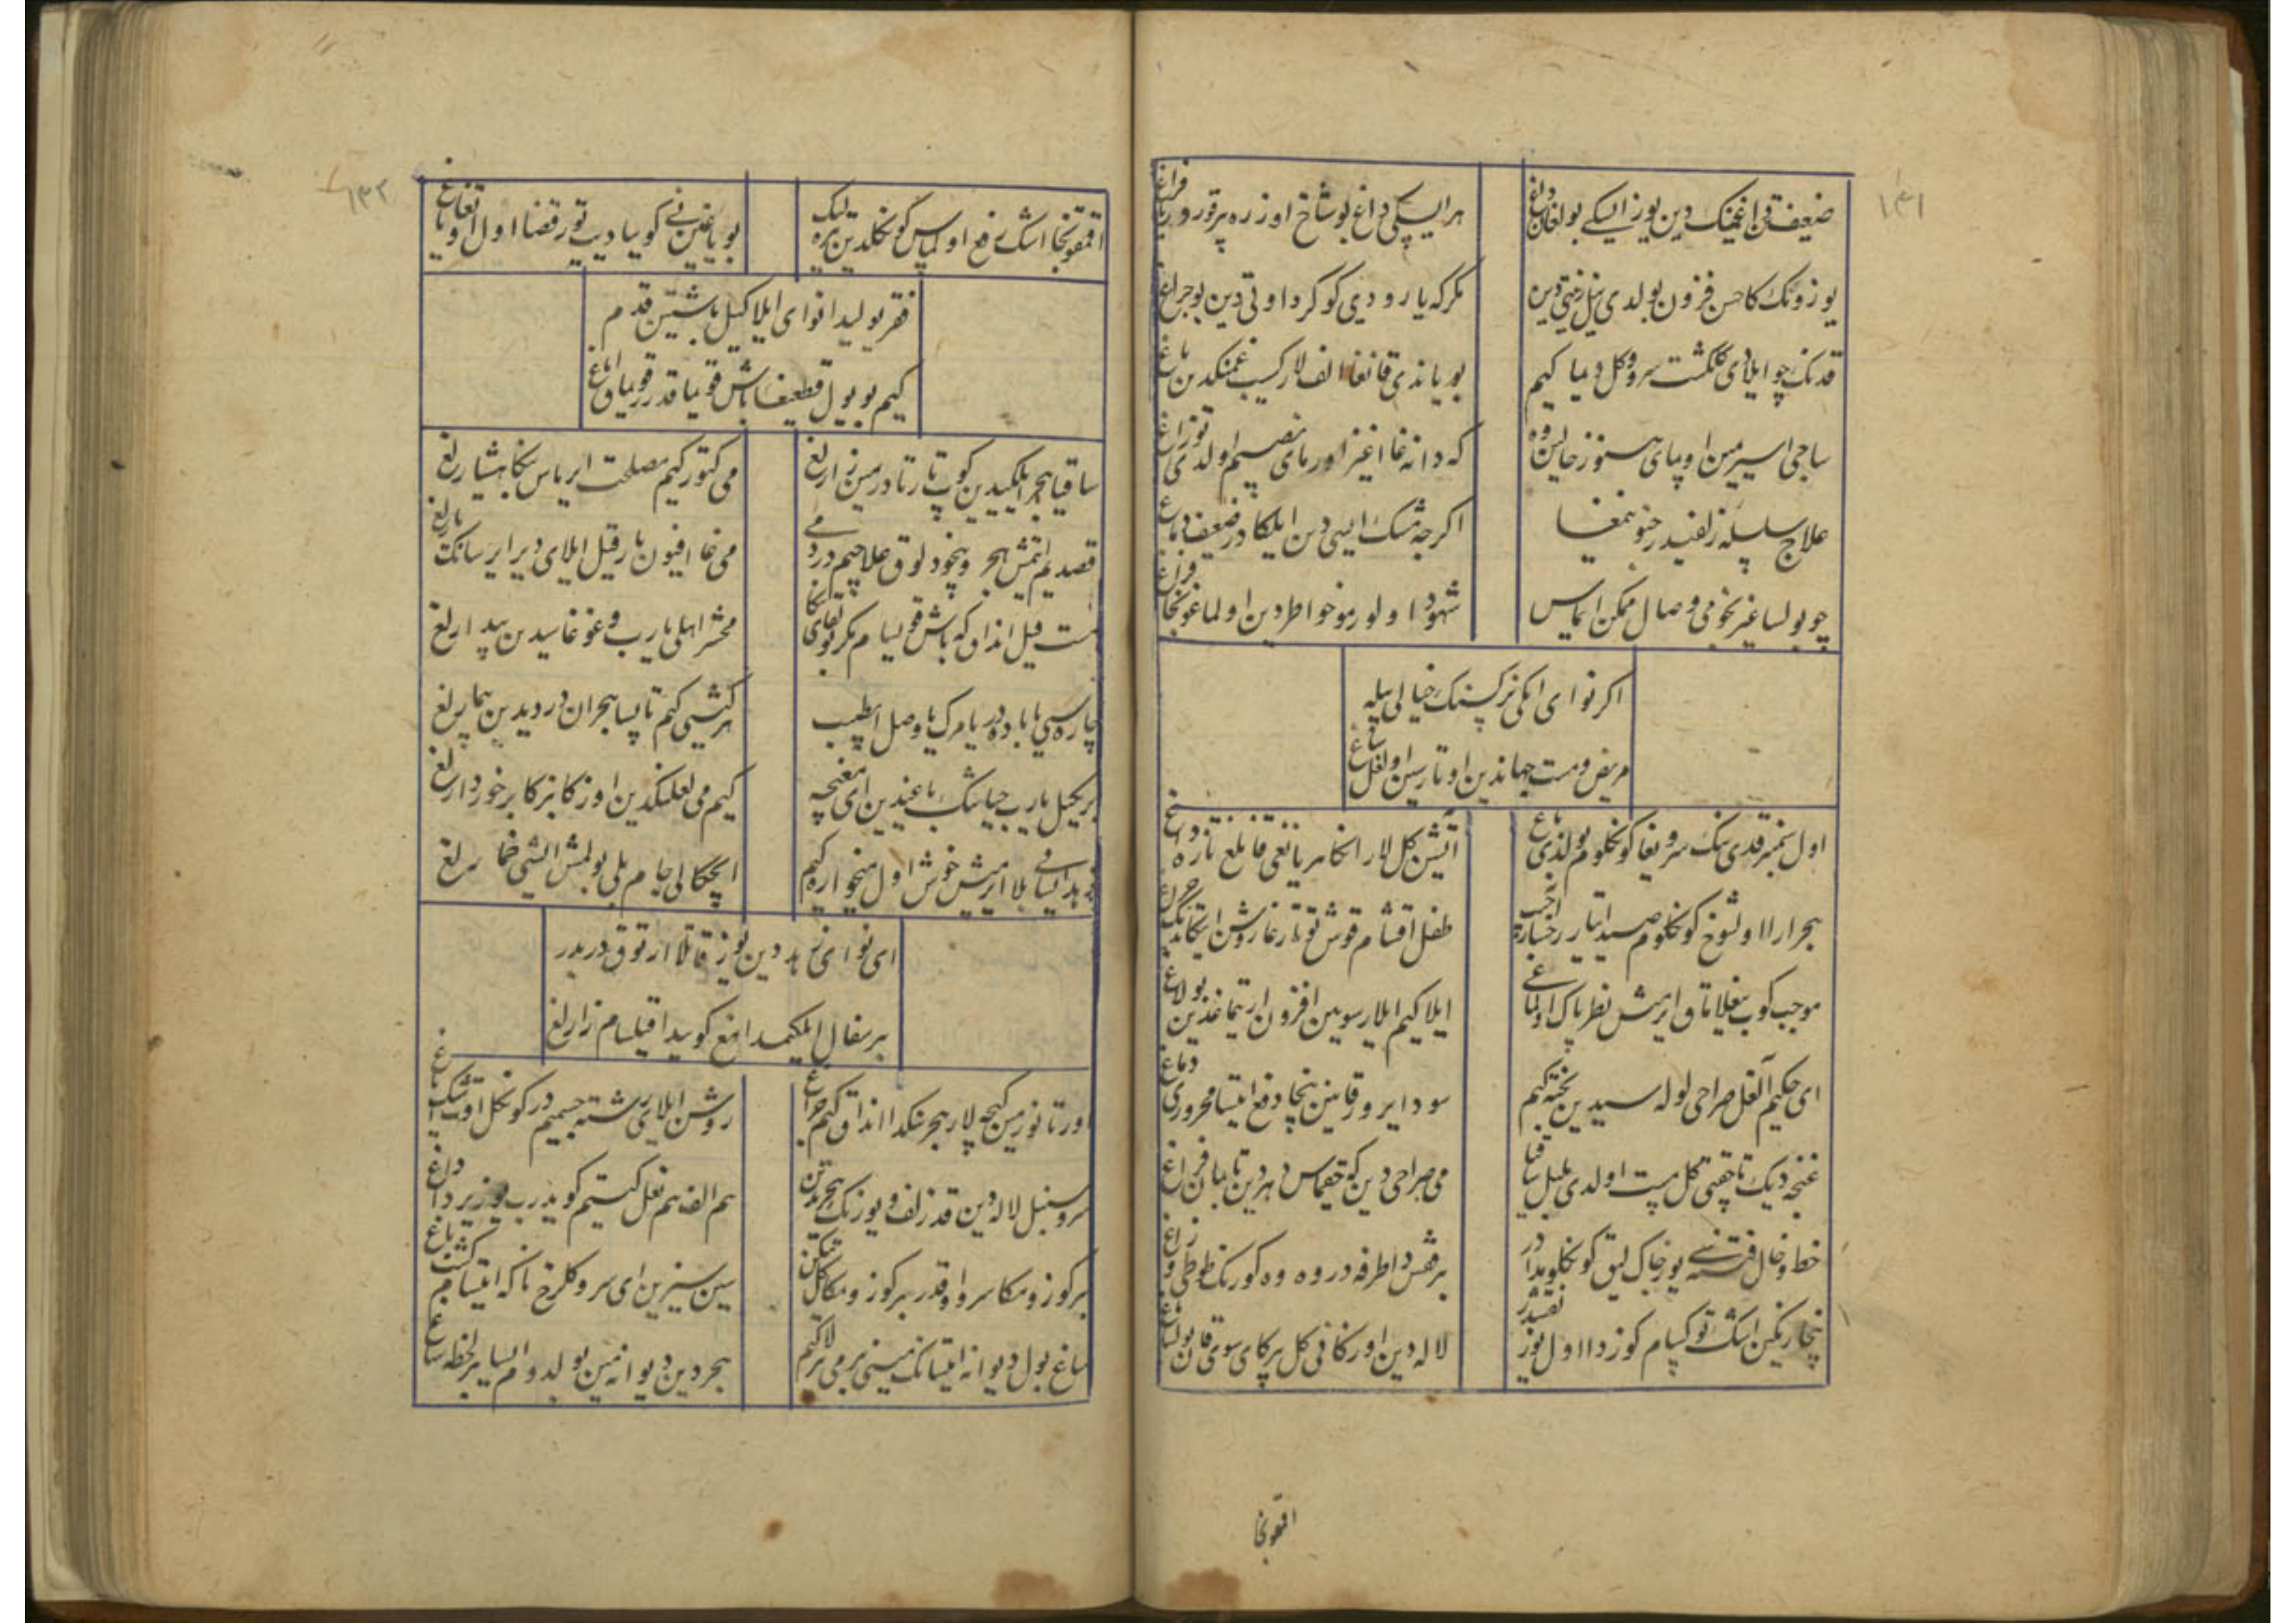 ۱۳۱
ضعفدین داغینک دین یوز ایسکی بولغان داغ
هر ایسکی داغ بو شاخ اوزره بر قورور یافراغ
یوزونک کا حسن فزون بولدی نیل دین
مگر که یارودی کوکرد اوتی دین بو چراغ
قدنک چو ایلادی گلگشت سرو و گل دیما کیم
بو یاندی قانغا الف لار کسیب غمنکدین باغ
ساچی اسیری مین اوپمای هنوز خالین وه
که دانه غا اغیز اورمای نصیبیم اولدی توزاغ
علاج سلسله زلفیدور جنونمغا
اگرچه مشک ایسی دین ایلکا دور ضعف دماغ
چو بولسا غیر نجومی وصال ممکن ایماس
شهود اولور مو خواطر دین اولماغونجا فراغ
اگر نوای ایکی نرگسینک خیالی بیله
مریض و مست جهاندین اوتار سین اولغیل ساغ
اول سمنبر قدی نینک سرویغا کونکلوم بولدی باغ
آتشین گل لار انکا هر یانغی قانلغ تازه داغ
هجر ارا اول شوخ کونکلوم صید ایتار رخسار آچیب
طفل اقشام قوش توتارغا روشن ایتکاندیک چراغ
موجب کوب ییغلاماق ایرمیش نظر پاک اولماغی
ایلا کیم ایلار سویین افزون اریتماغدین بولاغ
ای حکیم آلغیل صراحی لوله سیدین پخته کیم
سودا بیرور قانین نیچا دفع ایتسا محروری دماغ
غنچه دیک تا چقتی گل مست اولدی بلبل ساقیا
می صراحی دین که چقماس دهر دین تابمان فراغ
خط و خال فتنه سی یوز چاک لیق کونکلومدادور
بر قفس دا طرفه دور وه وه کورنک طوطی و زاغ
نیچا رنگین اشک توکسام کوزدا اول یوز نقشیدور
لاله دین اورکانی گل برکای سوی قان بولسا باغ
اقغونجا
۱۳۲
اقغونجا اشک رفع اولماس کونکلدین تیره لیک
بو یاغین نی گویا دیب تور قضا اول اوتقا یاغ
فقر یولیدا نوای ایلا کیل باشتین قدم
کیم بو یول قطعیغا باش قویماقدور قویماق ایاغ
ساقیا هجر ایلکیدین کوب تارتادور مین زارلغ
می کتور کیم مصلحت ایرماس منکا هشیارلغ
قصدیم ایتمیش هجر و بیخودلوق علاجیم درد می
می غا افیون یار قیل ایلای دیر ایرسانک یارلغ
مست قیل انداق که باش قویسام مگر بولغای منکا
محشر اهلی یارب و غوغاسیدین بیدارلغ
چاره سی یا باده دور یا مرگ یا وصل ای طبیب
هر کیشی کیم تاپسا هجران دردیدین بیمارلغ
بر کیل یارب حیاتینک باغیدین ای مغبچه
کیم می لعلینکدین اوزکا بزکا برخوردارلغ
زهد ایسانی بلا ایرمیش خوش اول میخواره کیم
ایچکالی جام بلی بولمیش ایشی خمارلغ
ای نوای زهد دین یوز قاتلا ارتوق دور بدر
بر سفال ایلکیمدا مغ کوییدا قیلسام زارلغ
اورتانورمین کیچه لار هجرینکدا انداق کیم چراغ
روشن ایلای رشته جسمیم دور کونکل اوت اشک یاغ
سرو سنبل لاله دین قد زلف و یوزنک هجریدین
هم الف هم نعل کستیم کویدوروب یوز یردا داغ
بر کوزومکا سرو اوقدور بر کوزومکا گل تیکن
سین سیزین ای سرو گلرخ ناگه ایتسام گشت باغ
ساغ بول دیوانه ایتسانک مینی بر می بر لا کیم
هجر دین دیوانه مین بولدوم ایسا بر لحظه ساغ